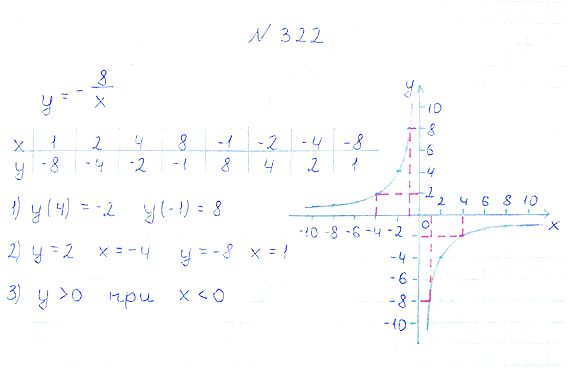 N 322
y = - 8/x
x 1 2 4 8 -1 -2 -4 -8
y -8 -4 -2 -1 8 4 2 1
1) y(4) = -2 y(-1) = 8
2) y = 2 x = -4 y = -8 x = 1
3) y > 0 при x < 0
y
10
8
6
4
2
-10 -8 -6 -4 -2 0 2 4 6 8 10 x
-4
-6
-8
-10